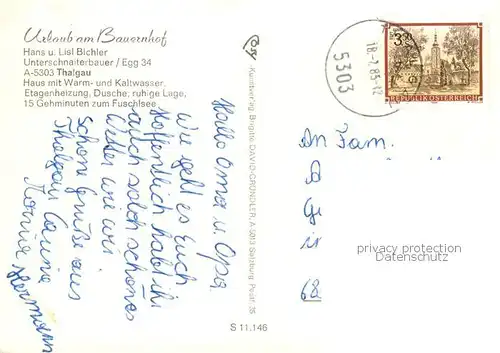 Urlaub am Bauernhof
Hans u. Lisl Bichler
Unterschnaiterbauer / Egg 34
A-5303 Thalgau
Haus mit Warm- und Kaltwasser,
Etagenheizung, Dusche, ruhige Lage,
15 Gehminuten zum Fuschlsee
Hallo Oma u. Opa.
Wie geht es Euch
Hoffentlich habt ihr
auch solch schönes
Wetter wie wir
Schöne Grüße aus
Thalgau
Hermann
Kunstverlag Brigitte DAVID-GRÜNDLER, A-5013 Salzburg, Postf. 35
S 11.146
5303
18.-7.85-12
REPUBLIK ÖSTERREICH
An Fam.
privacy protection
Datenschutz